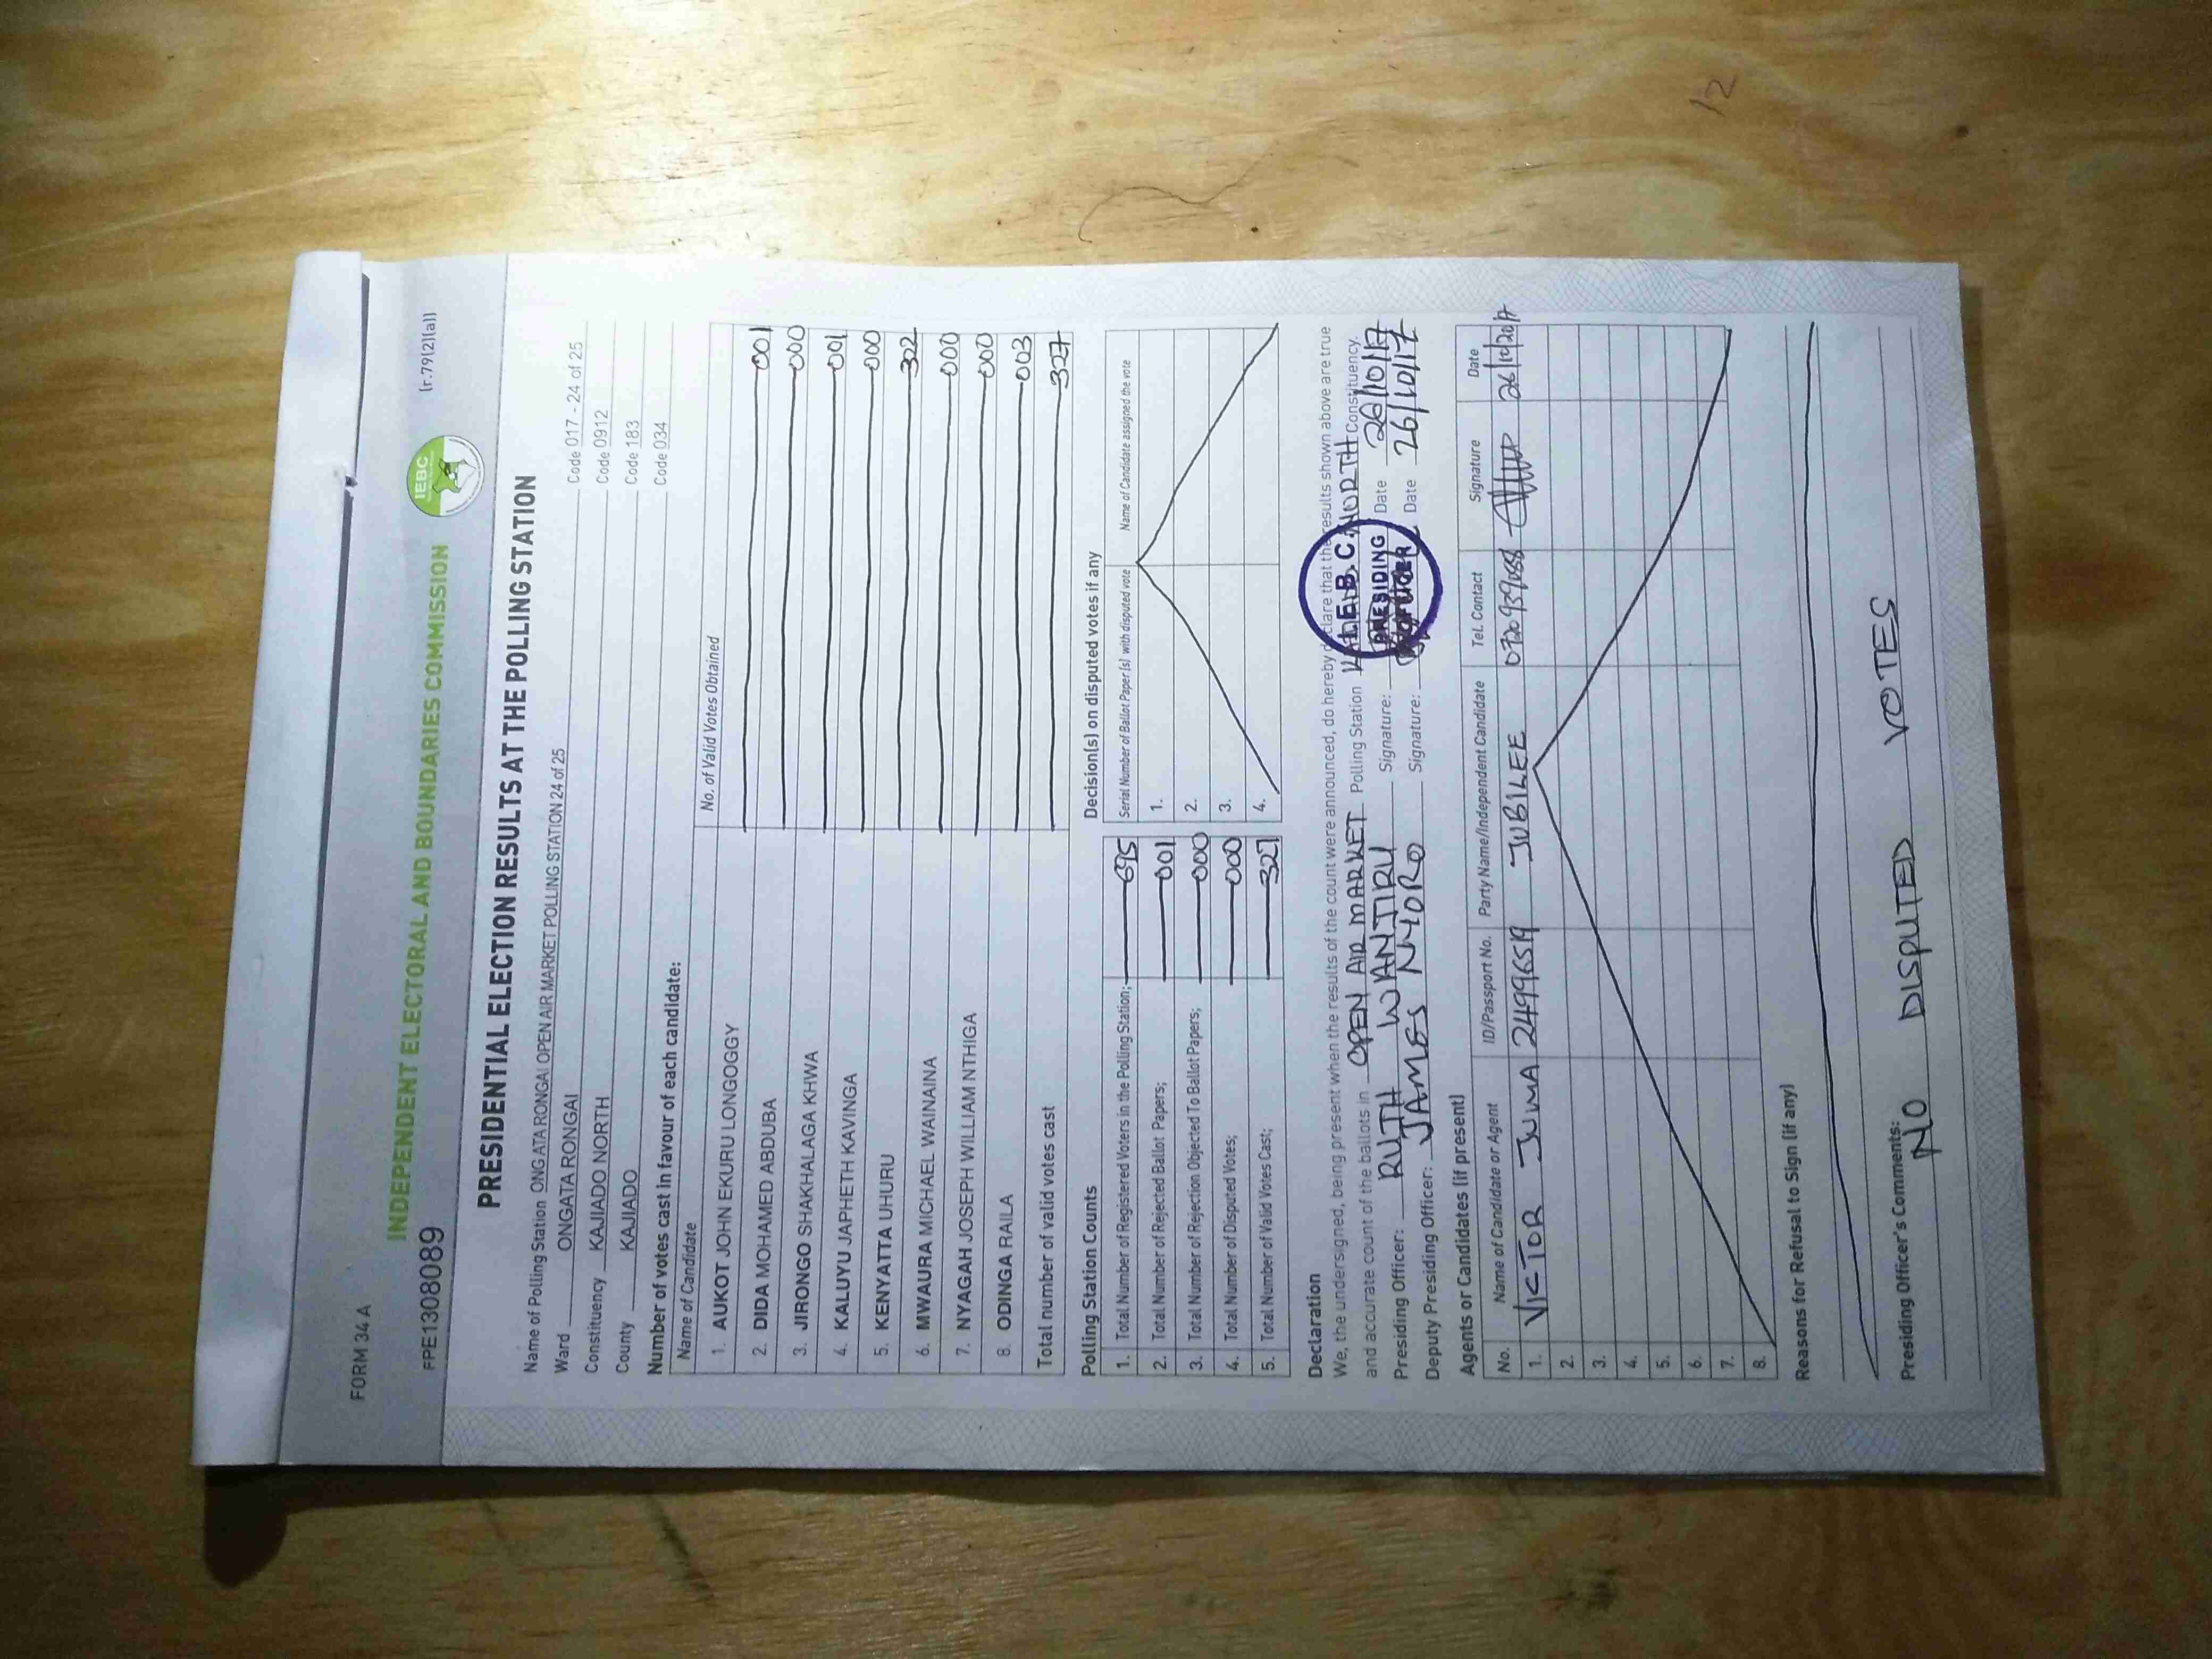 FORM 34 A
INDEPENDENT ELECTORAL AND BOUNDARIES COMMISSION
IEBC
(r.79(2)(a))
FPE1308089
PRESIDENTIAL ELECTION RESULTS AT THE POLLING STATION
Name of Polling Station ONG ATA RONGAI OPEN AIR MARKET POLLING STATION 24 of 25 Code 017 - 24 of 25
Ward ONGATA RONGAI Code 0912
Constituency KAJIADO NORTH Code 183
County KAJIADO Code 034
Number of votes cast in favour of each candidate:
Name of Candidate No. of Valid Votes Obtained
1. AUKOT JOHN EKURU LONGOGGY 001
2. DIDA MOHAMED ABDUBA 000
3. JIRONGO SHAKHALAGA KHWA 001
4. KALUYU JAPHETH KAVINGA 000
5. KENYATTA UHURU 322
6. MWAURA MICHAEL WAINAINA 000
7. NYAGAH JOSEPH WILLIAM NTHIGA 000
8. ODINGA RAILA 003
Total number of valid votes cast 327
Polling Station Counts
1. Total Number of Registered Voters in the Polling Station; 695
2. Total Number of Rejected Ballot Papers; 001
3. Total Number of Rejection Objected To Ballot Papers; 000
4. Total Number of Disputed Votes; 000
5. Total Number of Valid Votes Cast; 327
Decision(s) on disputed votes if any
Serial Number of Ballot Paper (s) with disputed vote Name of Candidate assigned the vote
1.
2.
3.
4.
Declaration
We, the undersigned, being present when the results of the count were announced, do hereby declare that the results shown above are true
and accurate count of the ballots in OPEN AIR MARKET Polling Station NORTH Constituency.
Presiding Officer: RUTH WANJIRU Signature: Date 26/10/17
Deputy Presiding Officer: JAMES NYORO Signature: Date 26/10/17
I.E.B.C.
PRESIDING
Agents or Candidates (if present)
No. Name of Candidate or Agent ID/Passport No. Party Name/Independent Candidate Tel. Contact Signature Date
1. VICTOR JUMA 24996519 JUBILEE 26/10/2017
2.
3.
4.
5.
6.
7.
8.
Reasons for Refusal to Sign (if any)
Presiding Officer's Comments:
NO DISPUTED VOTES
12